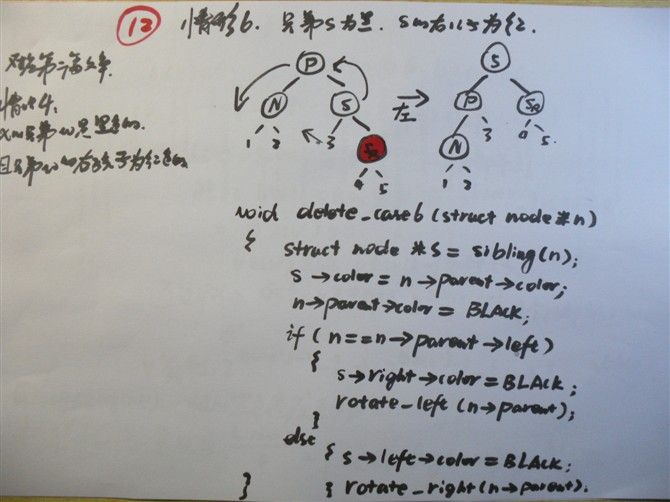 12 情形6. 兄弟S为黑. S的右儿子为红.
对应第二篇文章.
情况4:
x的兄弟w是黑色的.
且兄弟w的右孩子为红色的.
P S
N S 左 P SR
1 2 3 SR N 3 4 5
4 5 1 2
void delete_case6 (struct node *n)
{ struct node *s = sibling(n);
s→color = n→parent→color;
n→parent→color = BLACK;
if (n==n→parent→left)
{
s→right→color = BLACK;
rotate_left (n→parent);
}
else
{ s→left→color = BLACK;
} { rotate_right (n→parent).